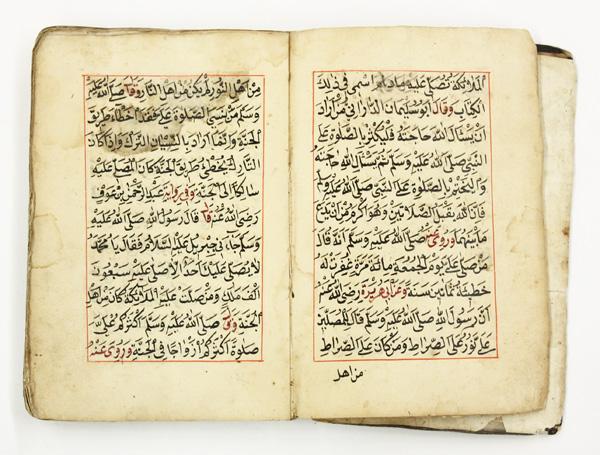 الملائكة تصلي عليه مادام اسمي في ذلك
الكتاب وقال ابو سليمان الداراني من اراد
ان يسئال الله حاجته فليكثر بالصلوة على
النبي صلى الله عليه وسلم ثم يسئال الله حاجته
وليختم بالصلوة على النبي صلى الله عليه وسلم
فان الله يقبل الصلاتين وهو اكرم من ان يدع
ما بينهما وروي عنه صلى الله عليه وسلم انه قال
من صلى علي يوم الجمعة مائة مرة غفرت له
خطيئة ثمانين سنة وعن ابي هريرة رضي الله عنه
ان رسول الله صلى الله عليه وسلم قال للمصلين
علي نور على الصراط ومن كان على الصراط
من اهل
من اهل النور لم يكن من اهل النار وقال صلى الله عليه
وسلم من نسي الصلوة علي فقد اخطاء طريق
الجنة وانما اراد بالنسيان الترك واذا كان
التارك يخطئ طريق الجنة كان المصلي عليه
سالكا الى الجنة وفي رواية عبد الرحمن بن عوف
رضي الله عنه قال قال رسول الله صلى الله عليه
وسلم جاءني جبريل عليه السلام فقال يا محمد
لا يصلي عليك احد الا صلى عليه سبعون
الف ملك ومن صلت عليه الملائكة كان من اهل
الجنة وقال صلى الله عليه وسلم اكثركم علي
صلوة اكثركم ازواجا في الجنة وروي عنه